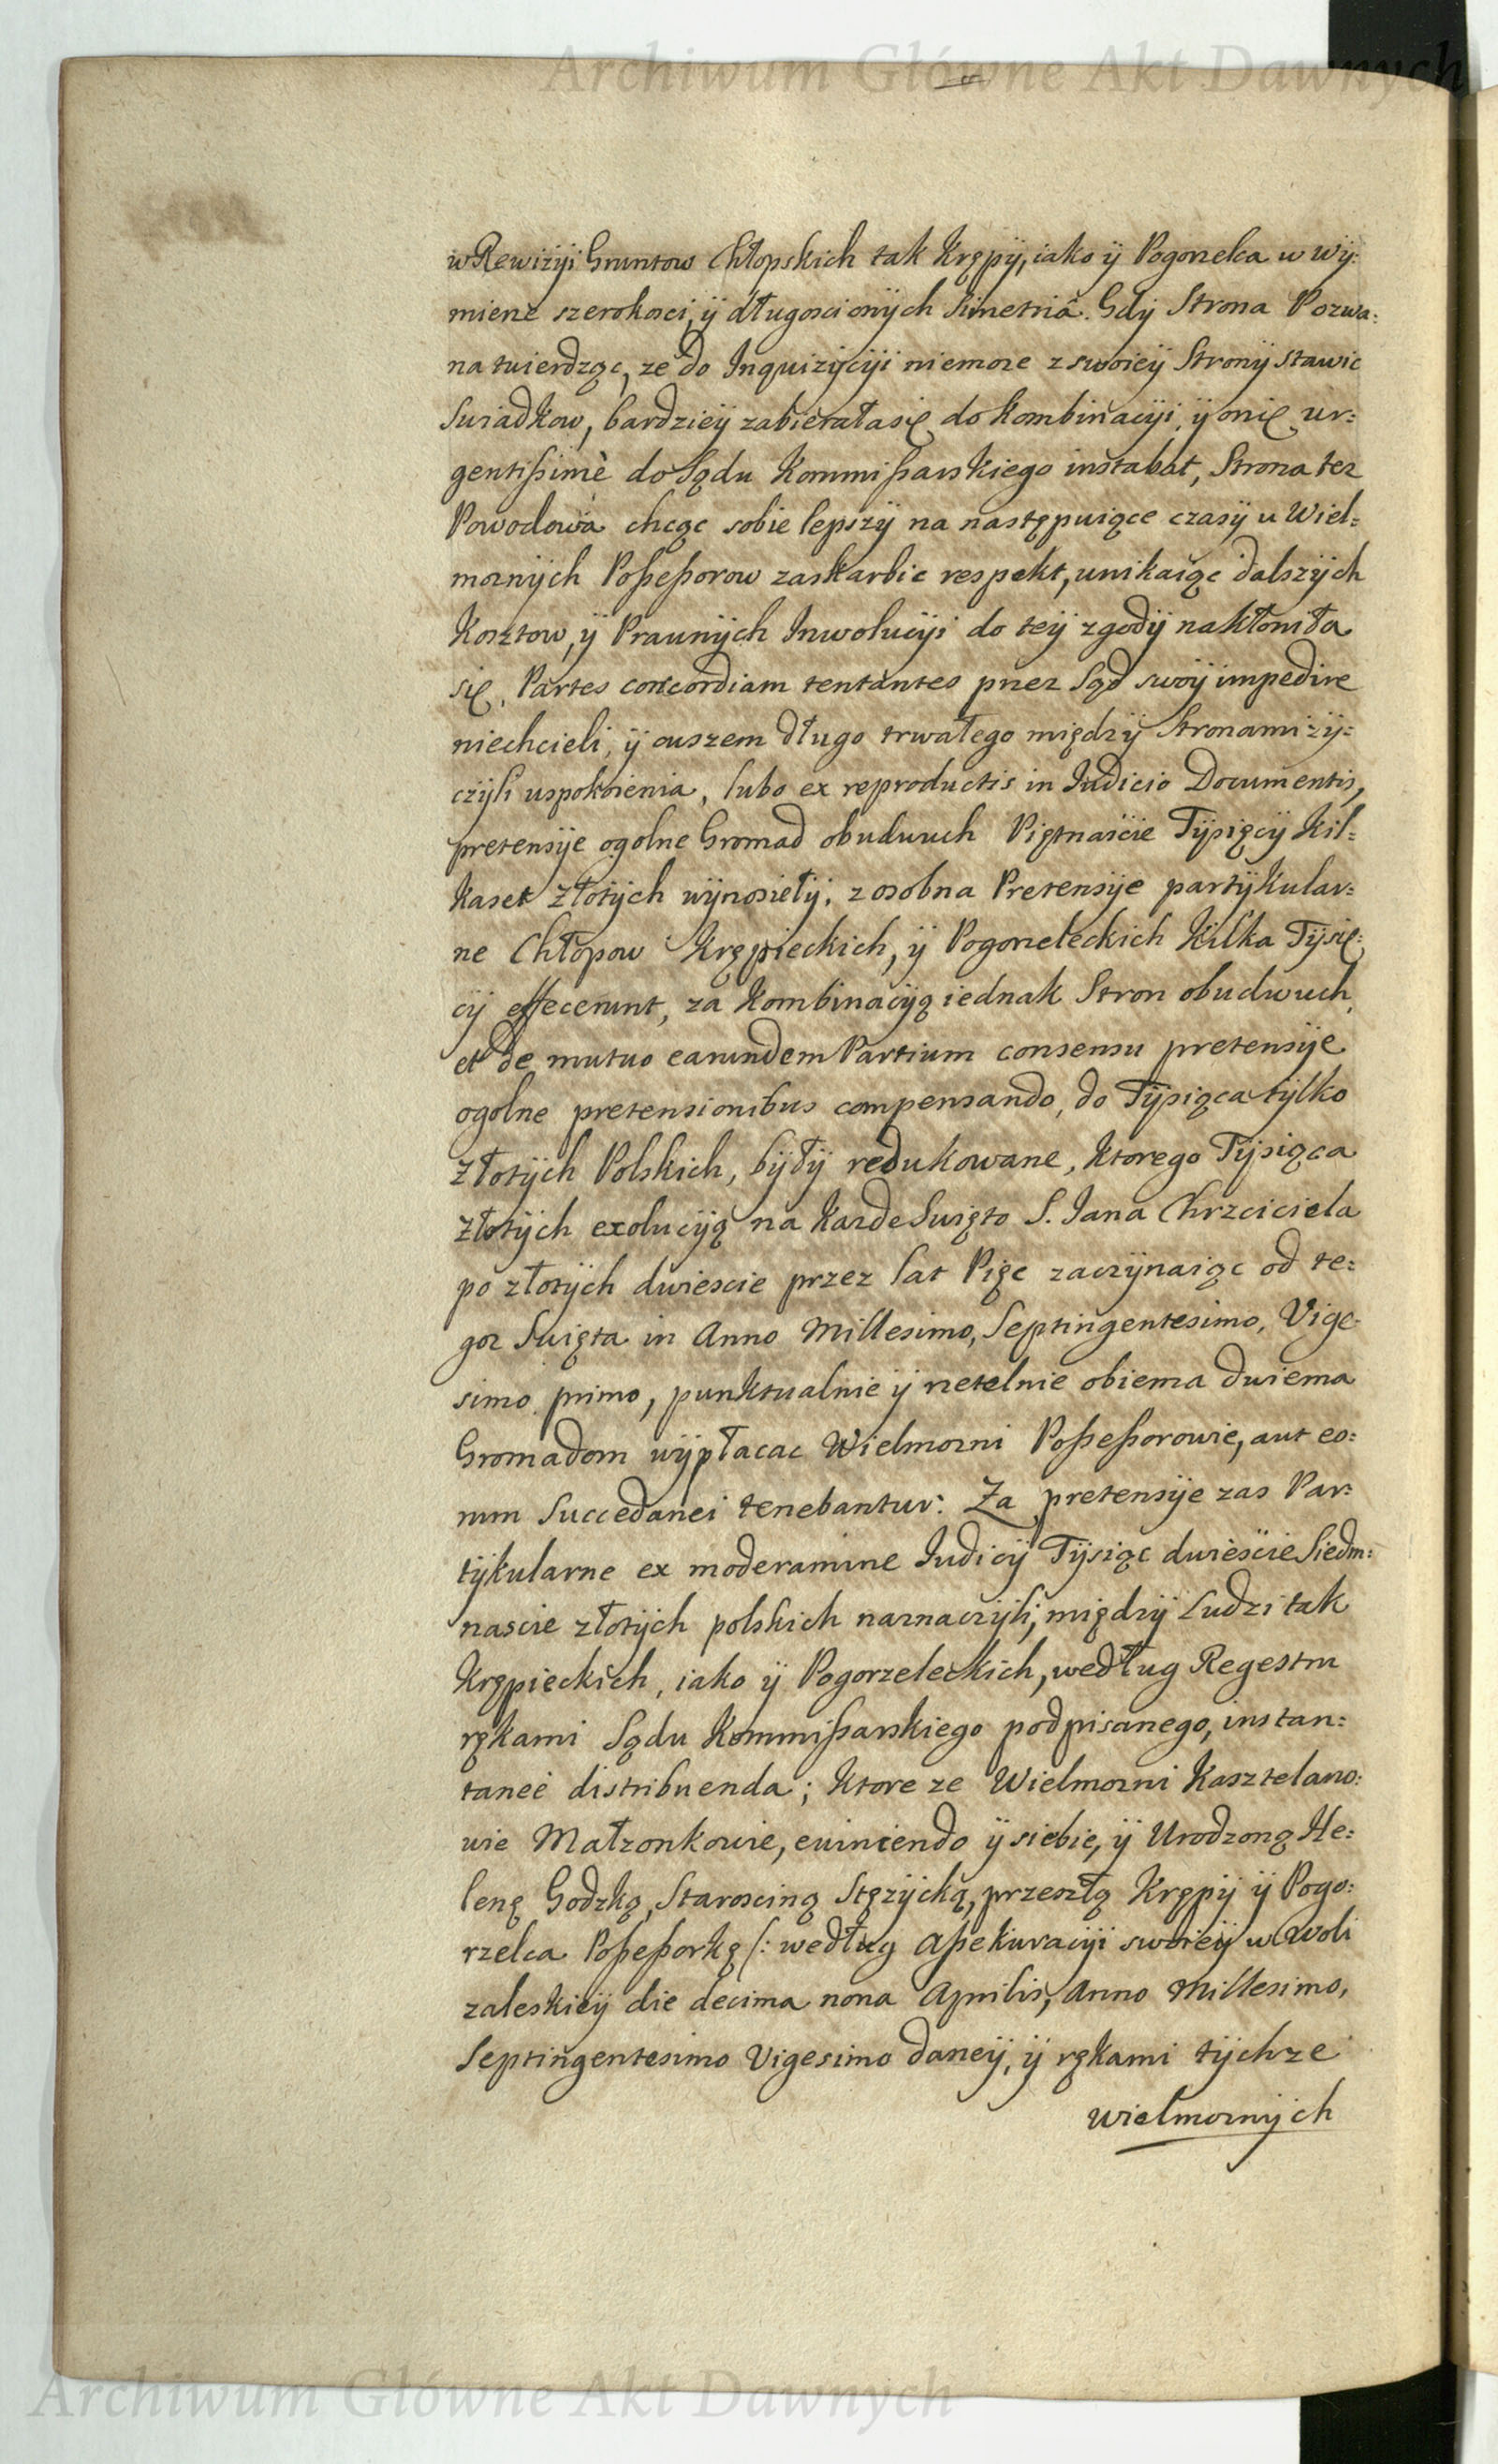 Archiwum Główne Akt Dawnych
w Rewizÿi Gruntow Chłopskich tak Krępÿ, iako ÿ Pogorzelca w Wÿ:
mierze szerokosci, ÿ długosci onÿch simetriâ. Gdÿ Strona Pozwa:
na twierdząc, ze do Inquizÿcÿi niemoze z swoieÿ Stronÿ stawic
Swiadkow, bardzieÿ zabierałasię do kombinacÿi, ÿ onię ur:
gentißimè do Sądu Kommißarskiego instabat, Strona tez
Powodowa chcąc sobie lepszÿ na następuiące czasÿ u Wiel:
moznÿch Poßeßorow zaskarbic respekt, unikaiąc dalszÿch
Kosztow, ÿ Prawnÿch Inwolucÿi do teÿ zgodÿ nakłoniła
się, Partes concordiam tentantes przez Sąd swóÿ impedire
niechcieli, ÿ owszem długo trwałego międzÿ Stronami zÿ:
czÿli uspokoienia, lubo ex reproductis in Iudicio Documentis,
pretensÿe ogolne Gromad obudwuch Piętnaście Tÿsięcÿ Kil:
kaset złotÿch wÿnosiełÿ, z osobna Pretensÿe partÿkular:
ne Chłopow Krępieckich, ÿ Pogorzeleckich Kilka Tÿsię:
cÿ effecerunt, za Kombinacÿą iednak Stron obudwuch,
et de mutuo earundem Partium consensu pretensÿe
ogolne pretensionibus compensando, do Tÿsiąca tÿlko
złotÿch Polskich, bÿłÿ redukowane, ktorego Tÿsiąca
złotÿch exolucÿą na kazde Swięto S. Iana Chrzciciela
po złotÿch dwiescie przez lat Pięc zaczÿnaiąc od te:
goz Swięta in Anno Millesimo, Septingentesimo, Vige-
simo primo, punktualnie ÿ rzetelnie obiema dwiema
Gromadom wÿpłacac Wielmozni Poßeßorowie, aut eo:
rum Succedanei tenebantur. Za pretensÿe zas Par:
tÿkularne ex moderamine Iudicÿ Tÿsiąc dwieście Siedm:
nascie złotÿch polskich naznaczÿli, międzÿ Ludzi tak
Krępieckich, iako ÿ Pogorzeleckich, według Regestru
rękami Sądu Kommißarskiego podpisanego, instan:
taneè distribuenda; ktore ze Wielmozni Kasztelano:
wie Małzonkowie, evinciendo ÿ siebie, ÿ Urodzoną He:
lenę Godzką, Staroscinę Stęzÿcką, przeszłą Krępÿ ÿ Pogo:
rzelca Poßeßorkę /: według Aßekuracÿi swoieÿ w Woli
zaleskieÿ die decima nona Aprilis, Anno Millesimo,
Septingentesimo Vigesimo daneÿ, ÿ rękami tÿchze
Wielmoznÿch
Archiwum Główne Akt Dawnych